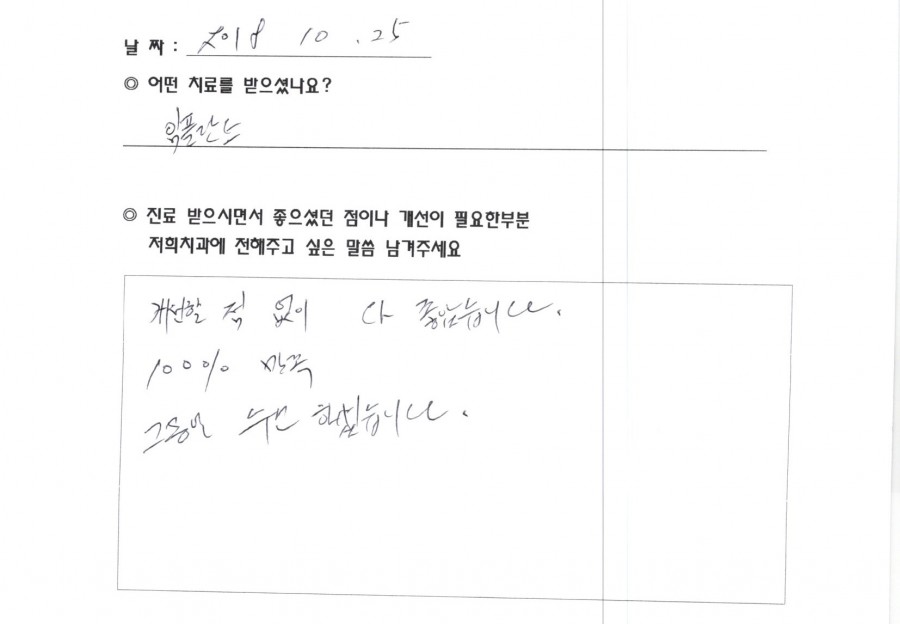 날 짜 : 2018 10 . 25
◎ 어떤 치료를 받으셨나요?
임플란트
◎ 진료 받으시면서 좋으셨던 점이나 개선이 필요한부분
저희치과에 전해주고 싶은 말씀 남겨주세요
개선할 점 없이 다 좋았습니다.
100% 만족
그동안 수고 하셨습니다.